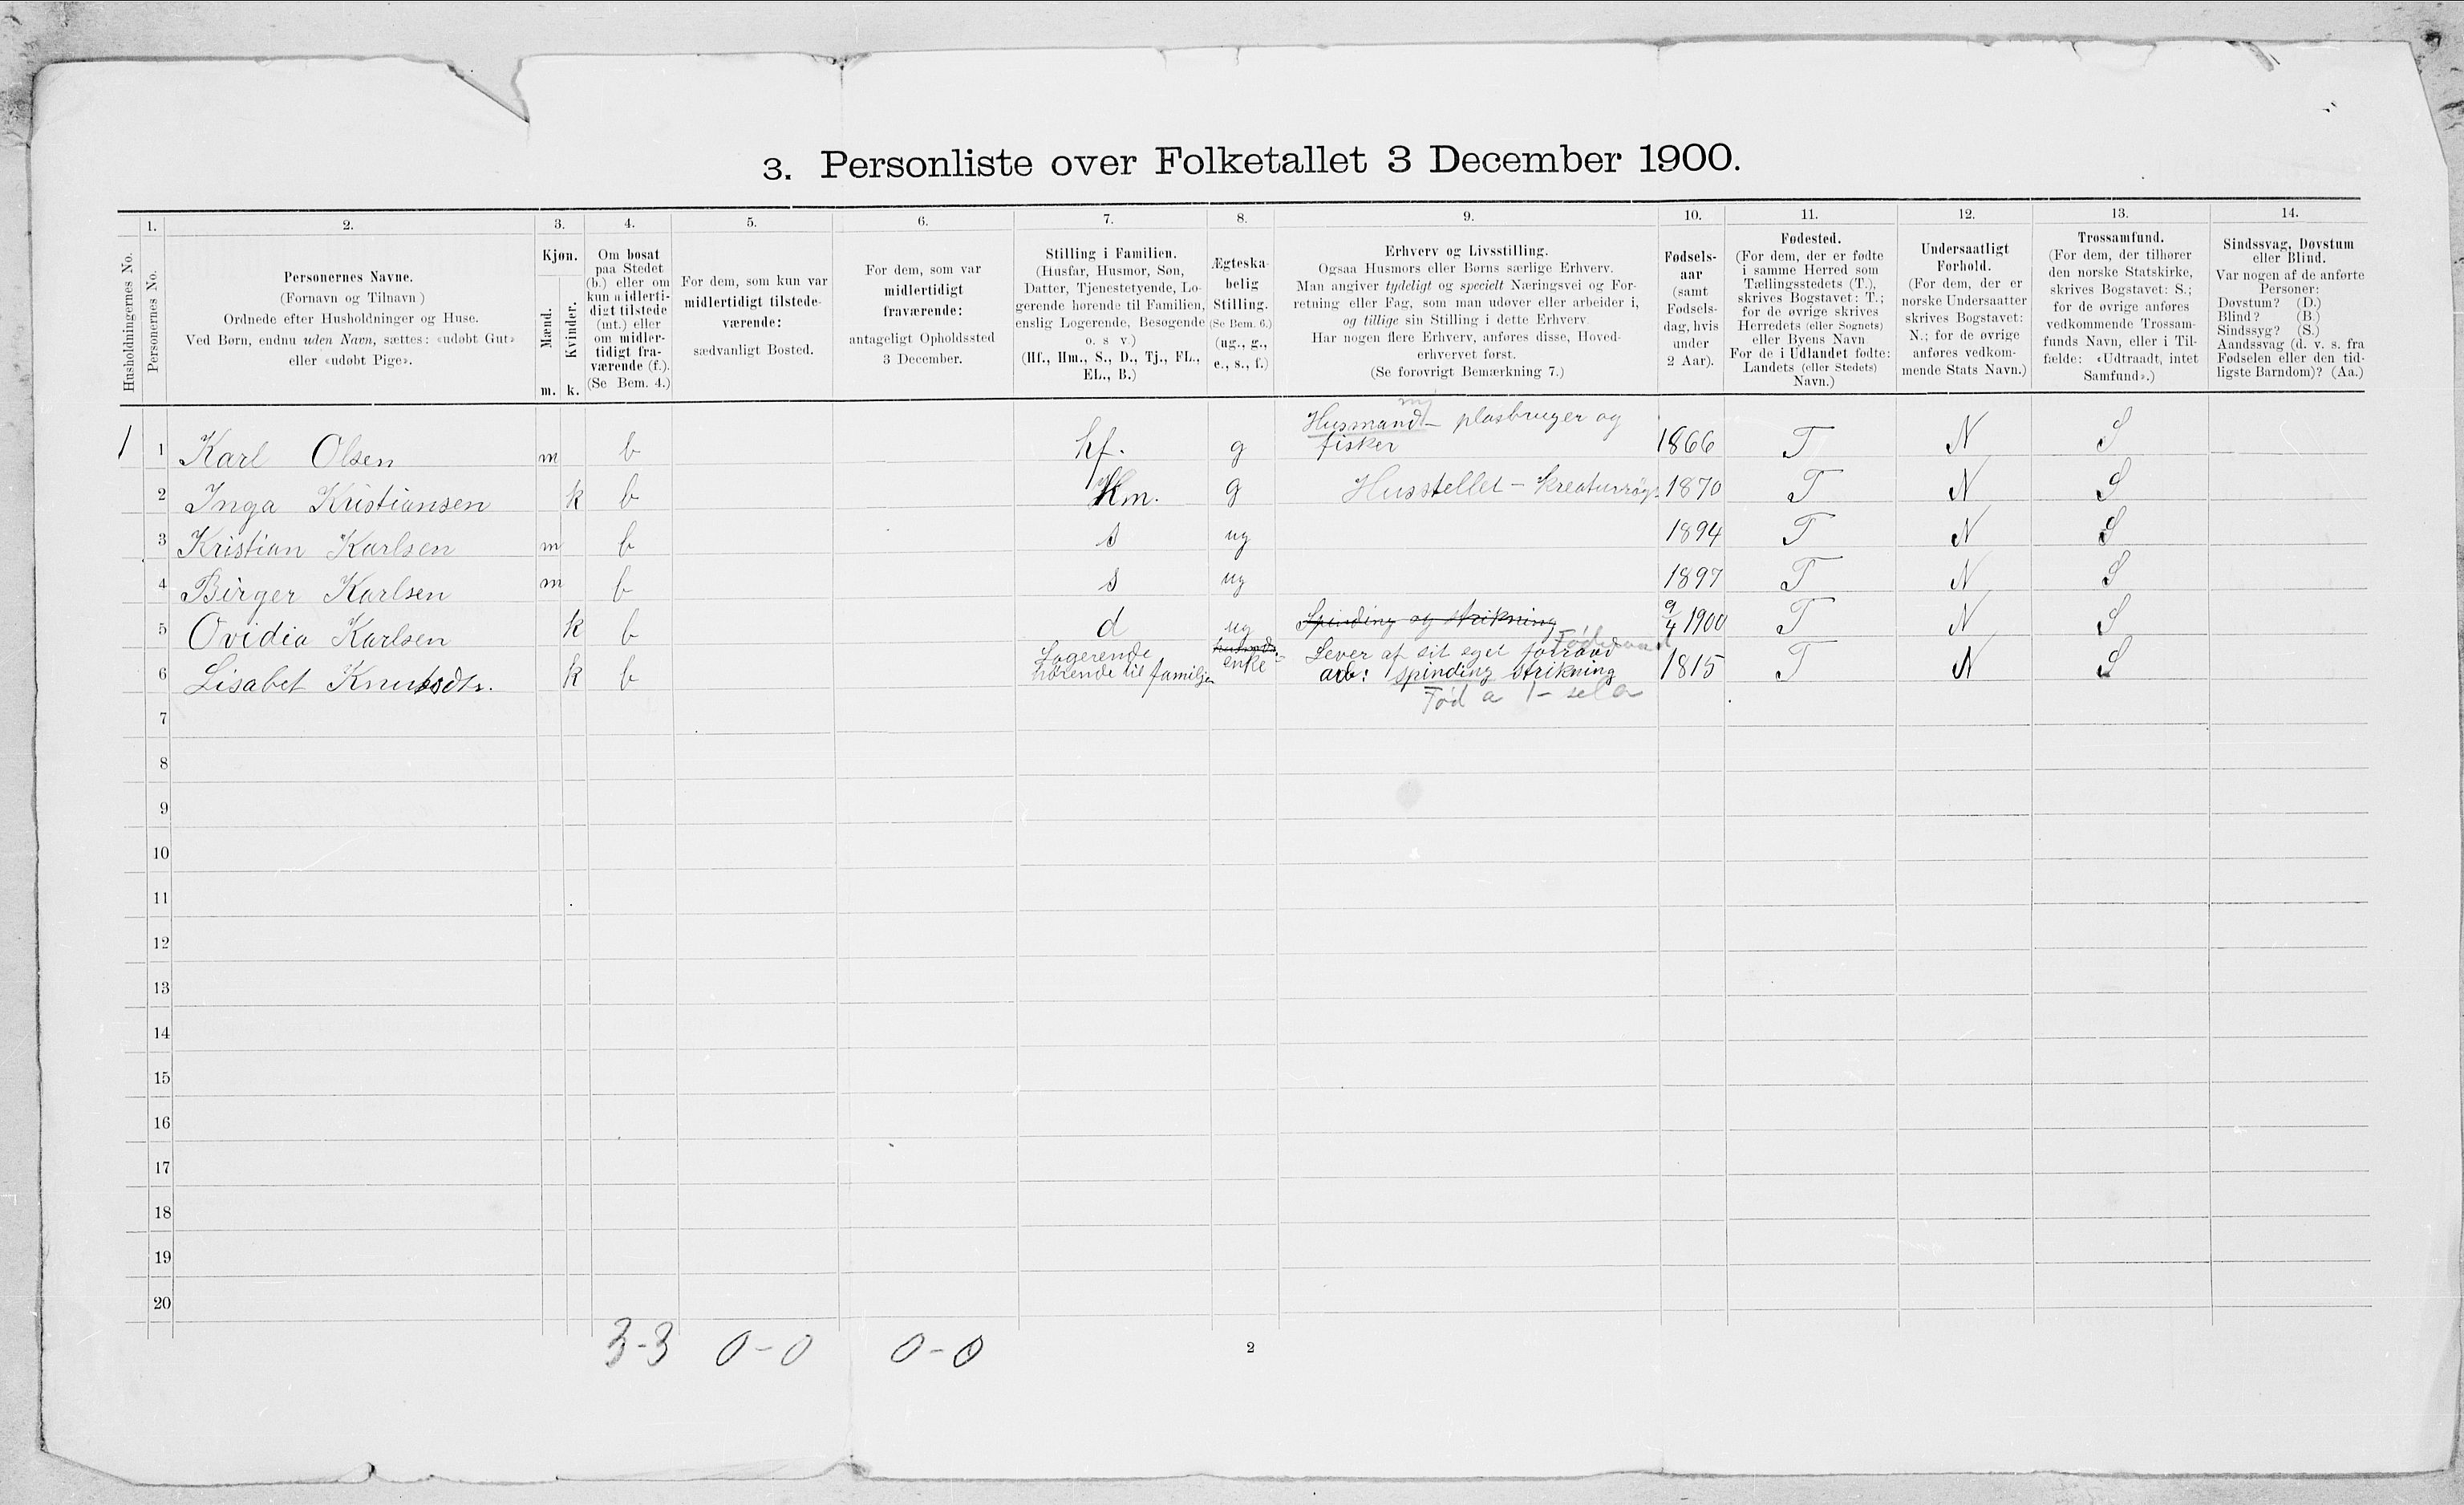 3. Personliste over Folketallet 3 December 1900.
1. 2. 3. 4. 5. 6. 7. 8. 9. 10. 11. 12. 13. 14.
Husholdningernes No.
Personernes No.
Personernes Navne.
(Fornavn og Tilnavn)
Ordnede efter Husholdninger og Huse.
Ved Børn, endnu uden Navn, sættes: «udøbt Gut»
eller «udøbt Pige».
Kjøn.
Mænd.
Kvinder.
m. k.
Om bosat
paa Stedet
(b.) eller om
kun midlerti-
digt tilstede
(mt.) eller
om midler-
tidigt fra-
værende (f.).
(Se Bem. 4.)
For dem, som kun var
midlertidigt tilstede-
værende:
sædvanligt Bosted.
For dem, som var
midlertidigt
fraværende:
antageligt Opholdssted
3 December.
Stilling i Familien.
(Husfar, Husmor, Søn,
Datter, Tjenestetyende, Lo-
gerende hørende til Familien,
enslig Logerende, Besøgende
o. s v.)
(Hf., Hm., S., D., Tj., FL.,
EL., B.)
Ægteska-
belig
Stilling.
(Se Bem. 6.)
(ug., g.,
e., s., f.)
Erhverv og Livsstilling.
Ogsaa Husmors eller Børns særlige Erhverv.
Man angiver tydeligt og specielt Næringsvei og For-
retning eller Fag, som man udøver eller arbeider i,
og tillige sin Stilling i dette Erhverv.
Har nogen flere Erhverv, anføres disse, Hoved-
erhvervet først.
(Se forøvrigt Bemærkning 7.)
Fødsels-
aar
(samt
Fødsels-
dag, hvis
under
2 Aar).
Fødested.
(For dem, der er fødte
i samme Herred som
Tællingsstedets (T.),
skrives Bogstavet: T.;
for de øvrige skrives
Herredets (eller Sognets)
eller Byens Navn
For de i Udlandet fødte:
Landets (eller Stedets)
Navn.)
Undersaatligt
Forhold.
(For dem, der er
norske Undersaatter
skrives Bogstavet:
N.; for de øvrige
anføres vedkom-
mende Stats Navn.)
Trossamfund.
(For dem, der tilhører
den norske Statskirke,
skrives Bogstavet: S.;
for de øvrige anføres
vedkommende Trossam-
funds Navn, eller i Til-
fælde: «Udtraadt, intet
Samfund».)
Sindssvag, Døvstum
eller Blind.
Var nogen af de anførte
Personer:
Døvstum? (D.)
Blind? (B.)
Sindssyg? (S.)
Aandssvag (d. v. s. fra
Fødselen eller den tid-
ligste Barndom)? (Aa.)
Husmand - plasbruger og
1 1 Karl Olsen m b hf. g fisker 1866 T N S
2 Inga Kristiansen k b Hm. g Husstellet - kreaturrøgt 1870 T N S
3 Kristian Karlsen m b s ug 1894 T N S
4 Birger Karlsen m b s ug 1897 T N S
5 Ovidia Karlsen k b d ug Spinding og strikning 9/4 1900 T N S
Logerende Lever af sit eget forraad
6 Lisabet Knutsdtr. k b hørende til familjen enke arb: spinding strikning 1815 T N S
7
8
9
10
11
12
13
14
15
16
17
18
19
20
3-3 0-0 0-0
2